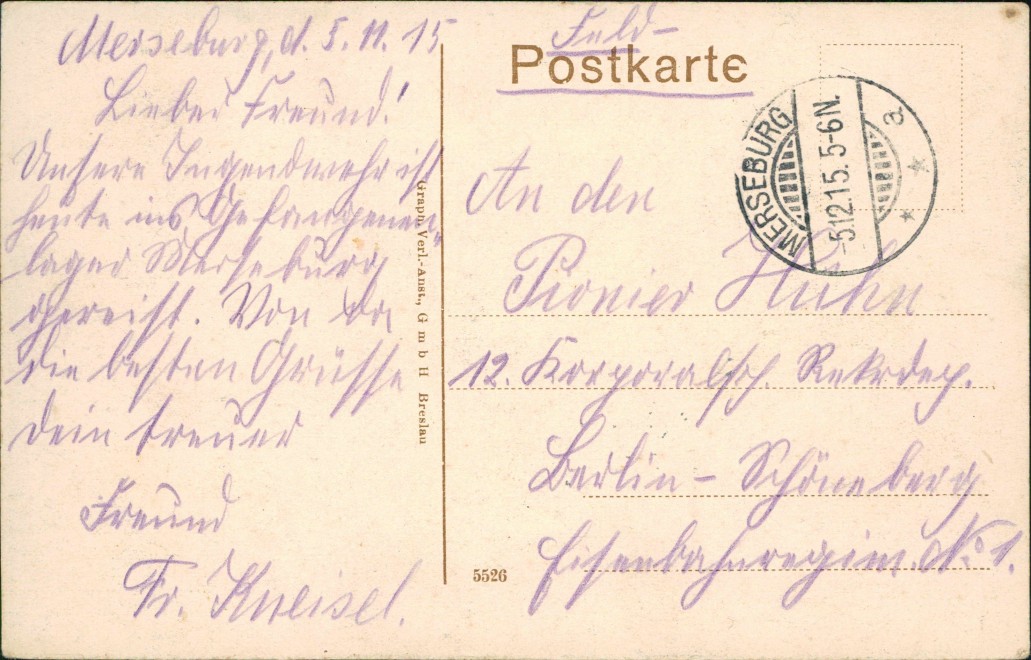 Merseburg, d. 5. 11. 15
Lieber Freund!
Unsere Jugendwehr ist
heute ins Gefangenen-
lager Merseburg
gereist. Von da
die besten Grüsse
dein treuer
Freund
Fr. Kneisel.
Graph. Verl.-Anst., G m b H Breslau
5526
Feld-
Postkarte
MERSEBURG
-5.12.15. 5-6N.
a
An den
Pionier Huhn
12. Korporalsch. Rekrdep.
Berlin - Schöneberg
Eisenbahnregim. No 1.